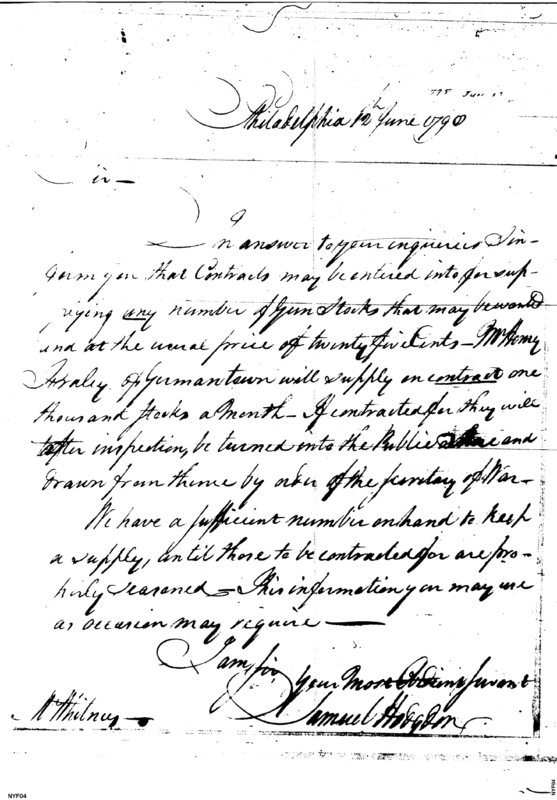 Philadelphia 12th June 1798
Sir —
In answer to your inqueries I in-
form you that Contracts may be entered into for sup-
plying any number of Gun Stocks that may be wanted
and at the usual price of twenty five Cents — Mr Henry
of Germantown will supply on contract one
thousand stocks a Month — If contracted for they will
after inspection, be turned into the Public Store and
drawn from thence by order of the Secretary of War —
We have a sufficient number on hand to keep
a supply, until those to be contracted for are pro-
perly seasoned — This information you may use
as occasion may require —
I am, sir
Your Most Obedient Servant
Samuel Hodgdon
Mr Whitney —
NYF04
NYF04